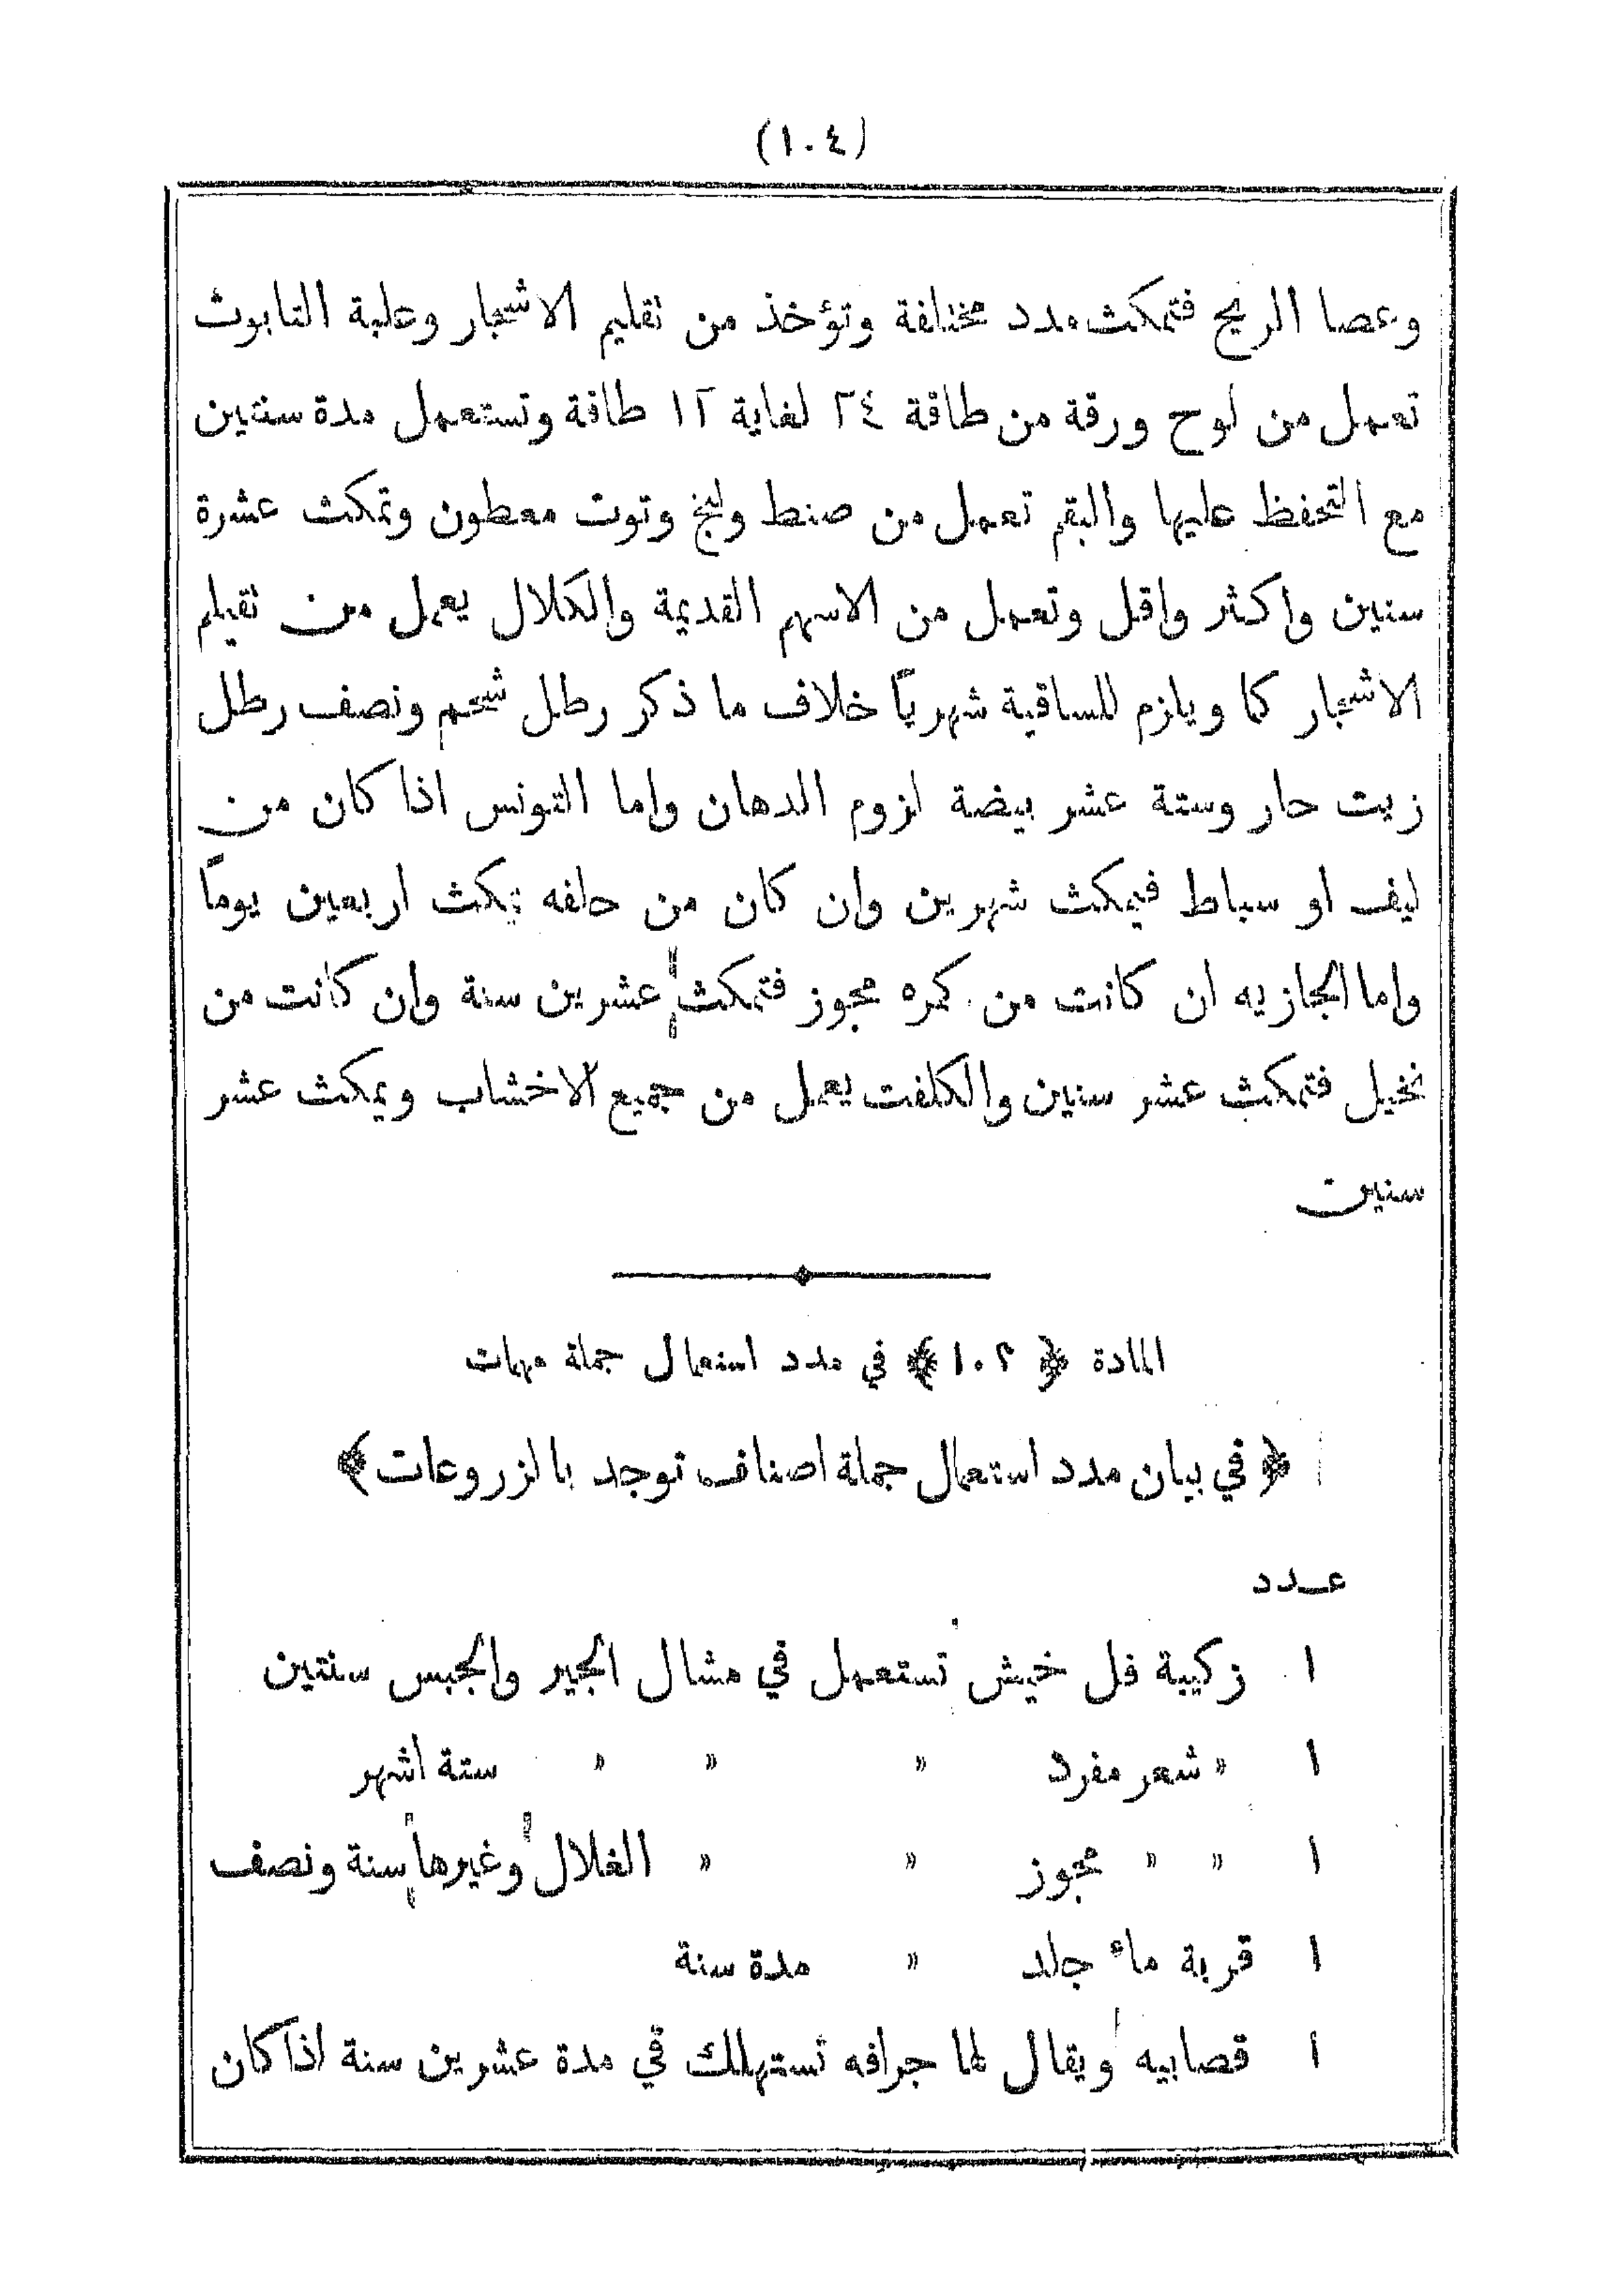 (١٠٤)
وعصا الريح فتمكث مدد مختلفة وتؤخذ من تقليم الاشجار وعلبة التابوث
تعمل من لوح ورقة من طاقة ٢٤ لغاية ١٢ طاقة وتستعمل مدة سنتين
مع التحفظ عليها والبقم تعمل من صنط ولبخ وتوت معطون وتمكث عشرة
سنين واكثر واقل وتعمل من الاسهم القديمة والكلال يعمل من تقيلم
الاشجار كما ويلزم للساقية شهرياً خلاف ما ذكر رطل شحم ونصف رطل
زيت حار وستة عشر بيضة لزوم الدهان واما التونس اذا كان من
ليف او سباط فيمكث شهرين وان كان من حلفه يمكث اربعين يوماً
واما الجازيه ان كانت من كمره مجوز فتمكث عشرين سنة وان كانت من
نخيل فتمكث عشر سنين والكلفت يعمل من جميع الاخشاب ويمكث عشر
سنين
المادة ﴿ ١٠٢ ﴾ في مدد استعمال جملة مهمات
﴿ في بيان مدد استعمال جملة اصناف توجد بالزروعات ﴾
عدد
١ زكيبة فل خيش تستعمل في مشال الجير والجبس سنتين
١ » شعر مفرد » » » ستة اشهر
١ » » مجوز » » الغلال وغيرها سنة ونصف
١ قربة ماء جلد » مدة سنة
١ قصابيه ويقال لها جرافه تستهلك في مدة عشرين سنة اذا كان